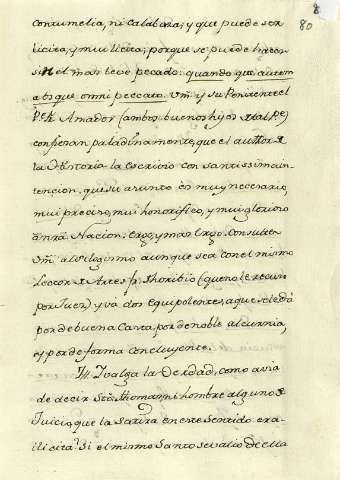 8
80
contumelia, ni calabaza; y que puede ser
licita, y mui licita; porque se puede hacer
sin el mas leve pecado: quando que autem
absque omni peccato. Vm. y su Penitente el
P. Fr. Amador (ambos buenos hijos de tal Pe)
confiesan paladinamente, que el author de
la Historia la escrivio con santissima in-
tencion, que su asunto es mui necesario,
mui preciso, mui honorifico, y mui glorioso
a nra Nacion. Ergo, y mas Ergo. Consulten
Vm. al silogismo aunque sea con el mismo
Lector de Artes fr. Thoribio (que no le recuso
por Juez) y va dos equipolentes, a que se le dà
por de buena Casta, por de noble alcurnia,
y por de forma concluyente.
Y valga la Verdad, como avia
de decir Sto. Thomas, ni hombre alguno de
Juicio, que la Satira en este sentido era
ilicita? Si el mismo Santo se valio de ella